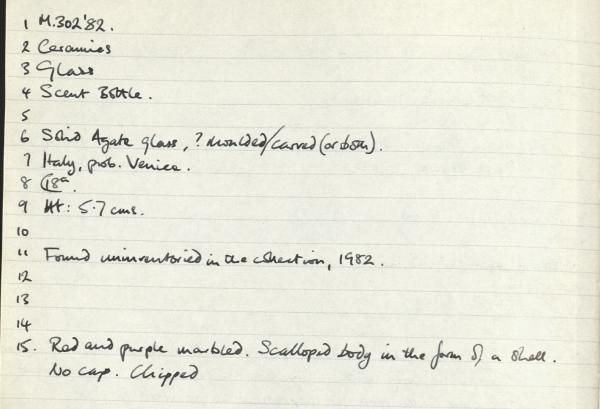 1 M.302'82.
2 Ceramics
3 Glass
4 Scent Bottle.
5
6 Solid Agate glass, ? moulded/carved (or both).
7 Italy, prob. Venice.
8 C18th.
9 Ht: 5.7 cms.
10
11 Found uninventoried in the collection, 1982.
12
13
14
15. Red and purple marbled. Scalloped body in the form of a shell.
No cap. Chipped